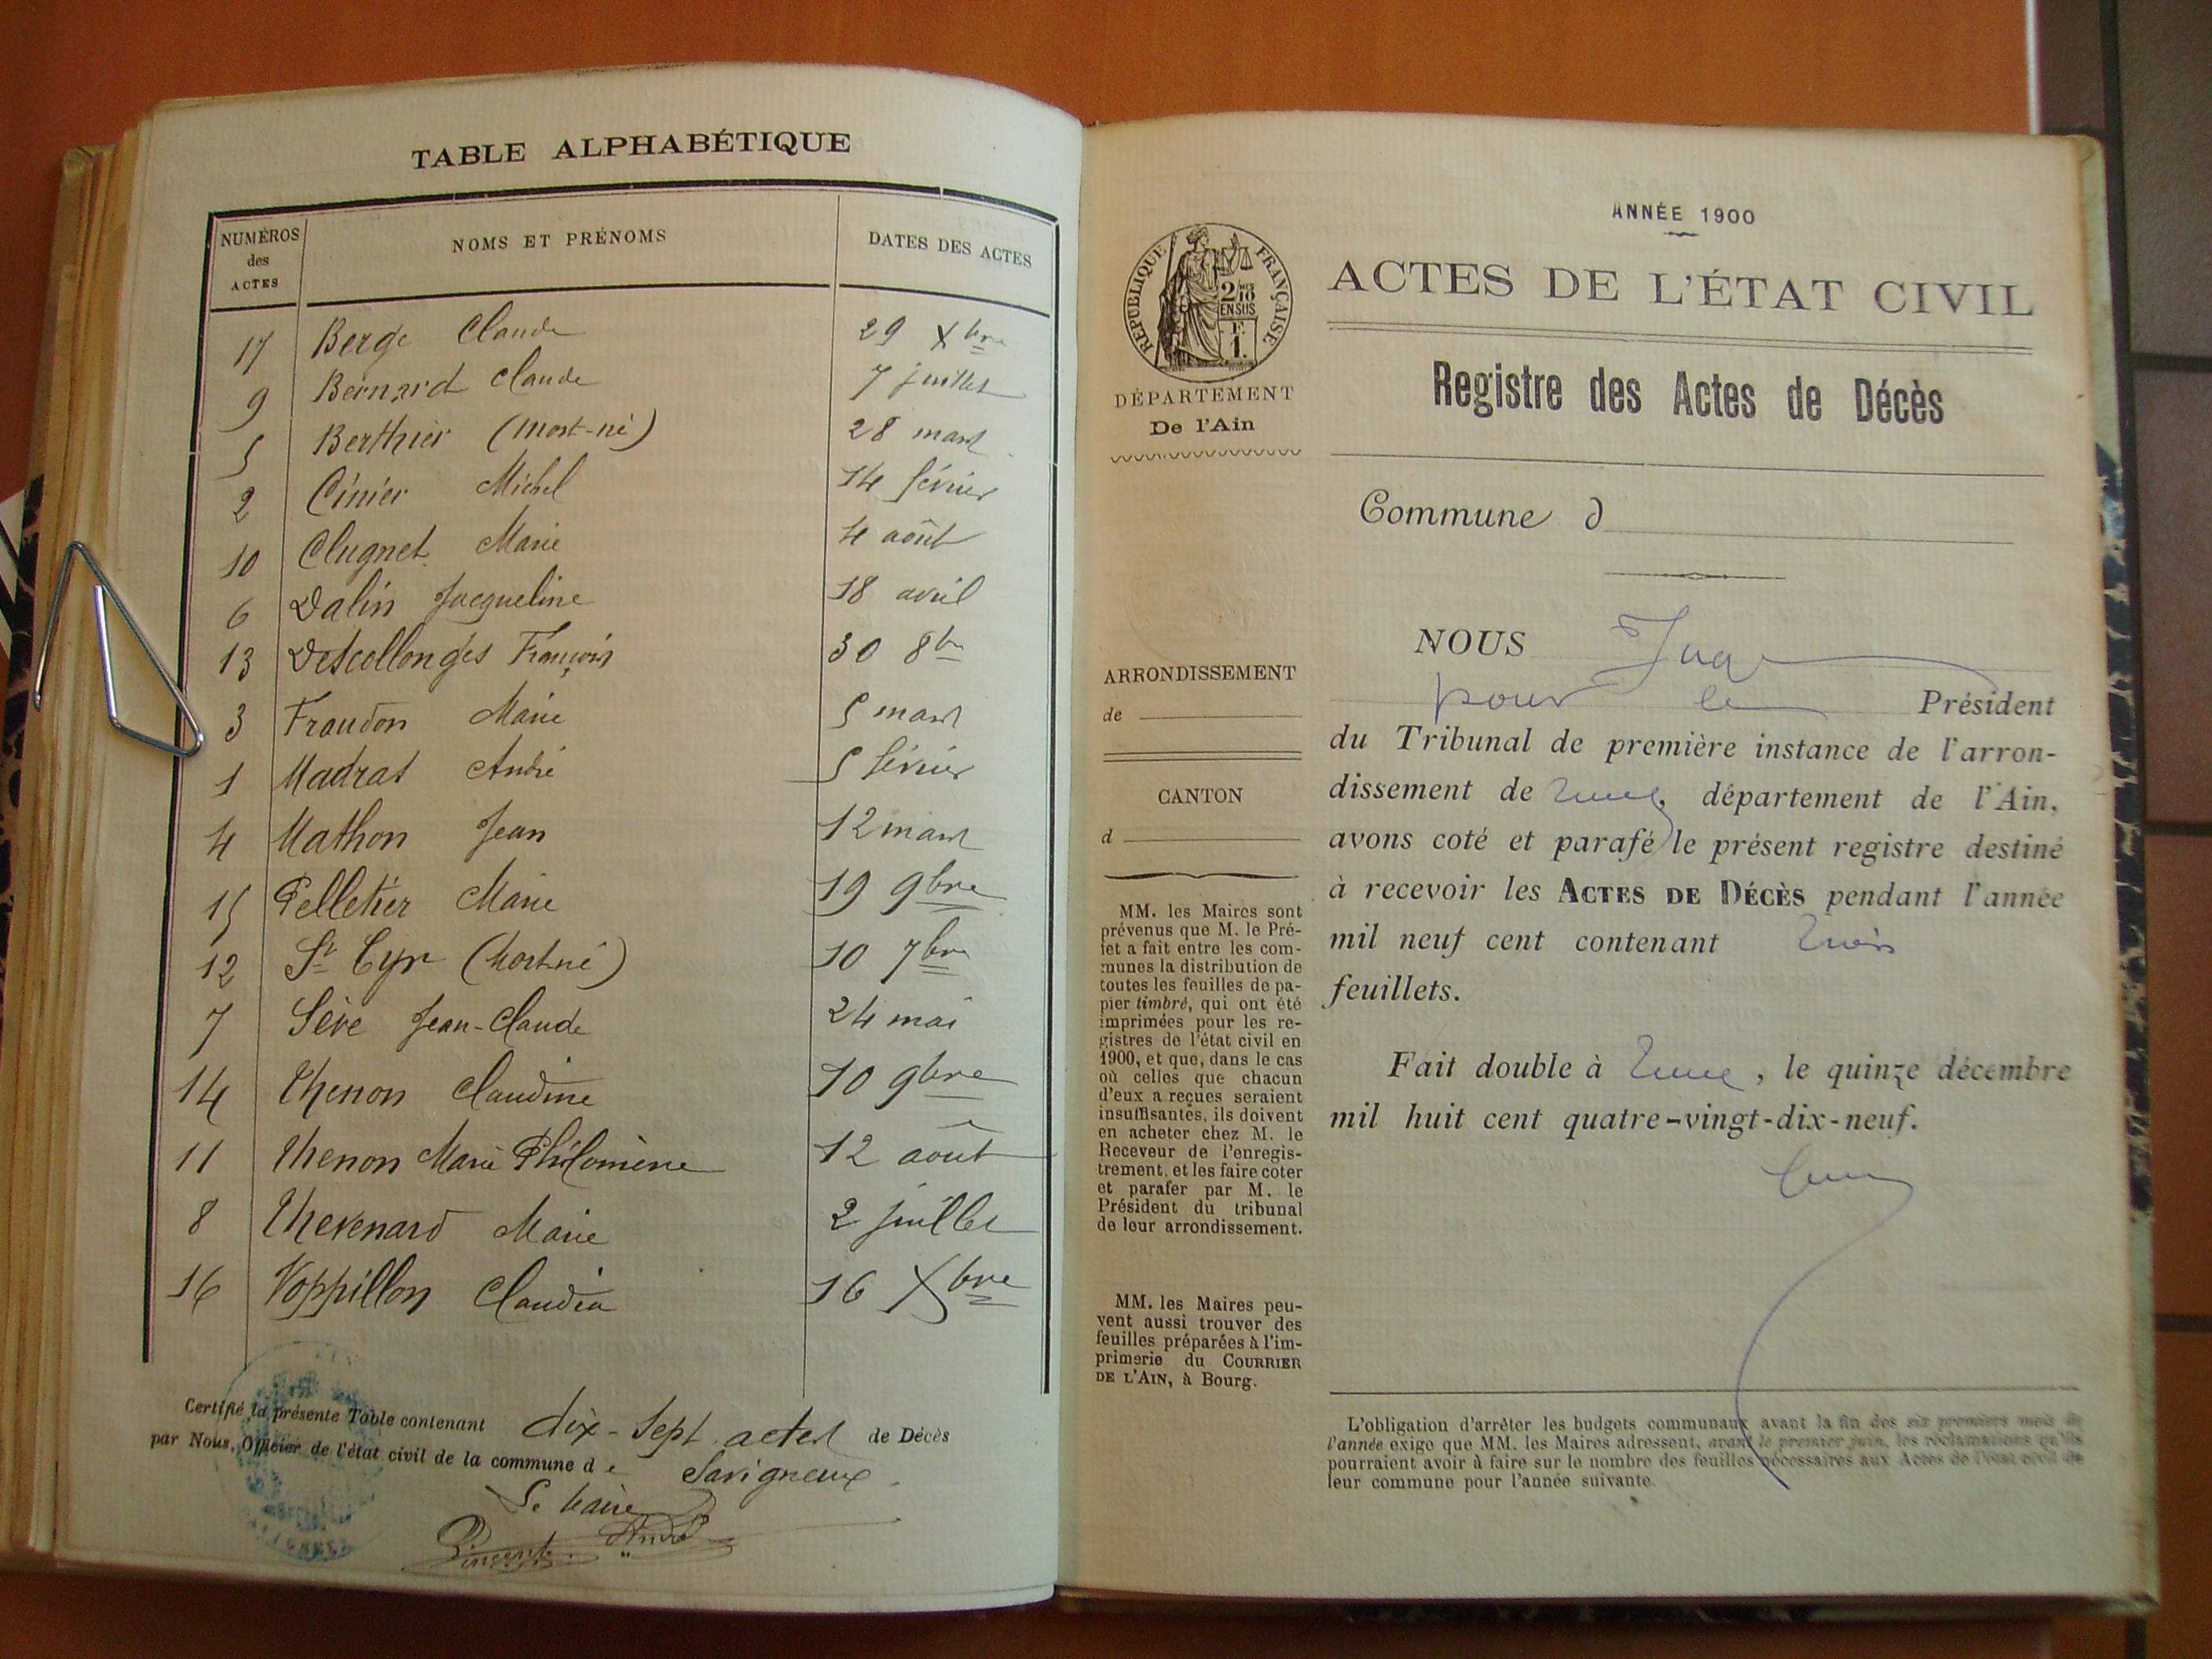 TABLE ALPHABÉTIQUE
NUMÉROS des ACTES
NOMS ET PRÉNOMS
DATES DES ACTES
17 Berge Claude 29 Xbre
9 Bernard Claude 7 juillet
5 Berthier (mort-né) 28 mars
2 Cinier Michel 14 février
10 Clugnet Marie 4 août
6 Dalin Jacqueline 18 avril
13 Descollonges François 30 8bre
3 Fraudon Marie 5 mars
1 Madras André 5 février
4 Mathon Jean 12 mars
15 Pelletier Marie 19 9bre
12 St Cyr (Mort né) 10 7bre
7 Sève Jean-Claude 24 mai
14 Thenon Claudine 10 9bre
11 Thenon Marie Philomène 12 août
8 Thevenard Marie 2 juillet
16 Voppillon Claudia 16 Xbre
Certifié la présente Table contenant dix-sept actes de Décès
par Nous, Officier de l'état civil de la commune de Savigneux.
Le Maire
ANNÉE 1900
RÉPUBLIQUE FRANÇAISE
DÉPARTEMENT
De l'Ain
ACTES DE L'ÉTAT CIVIL
Registre des Actes de Décès
Commune d
ARRONDISSEMENT
de
CANTON
d
MM. les Maires sont
prévenus que M. le Pré-
fet a fait entre les com-
munes la distribution de
toutes les feuilles de pa-
pier timbré, qui ont été
imprimées pour les re-
gistres de l'état civil en
1900, et que, dans le cas
où celles que chacun
d'eux a reçues seraient
insuffisantes, ils doivent
en acheter chez M. le
Receveur de l'enregis-
trement, et les faire coter
et parafer par M. le
Président du tribunal
de leur arrondissement.
MM. les Maires peu-
vent aussi trouver des
feuilles préparées à l'im-
primerie du COURRIER
DE L'AIN, à Bourg.
NOUS Juge
pour le Président
du Tribunal de première instance de l'arron-
dissement de département de l'Ain,
avons coté et parafé le présent registre destiné
à recevoir les ACTES DE DÉCÈS pendant l'année
mil neuf cent contenant trois
feuillets.
Fait double à , le quinze décembre
mil huit cent quatre-vingt-dix-neuf.
L'obligation d'arrêter les budgets communaux avant la fin des six premiers mois de
l'année exige que MM. les Maires adressent, avant le premier juin, les réclamations qu'ils
pourraient avoir à faire sur le nombre des feuilles nécessaires aux Actes de l'état civil de
leur commune pour l'année suivante.